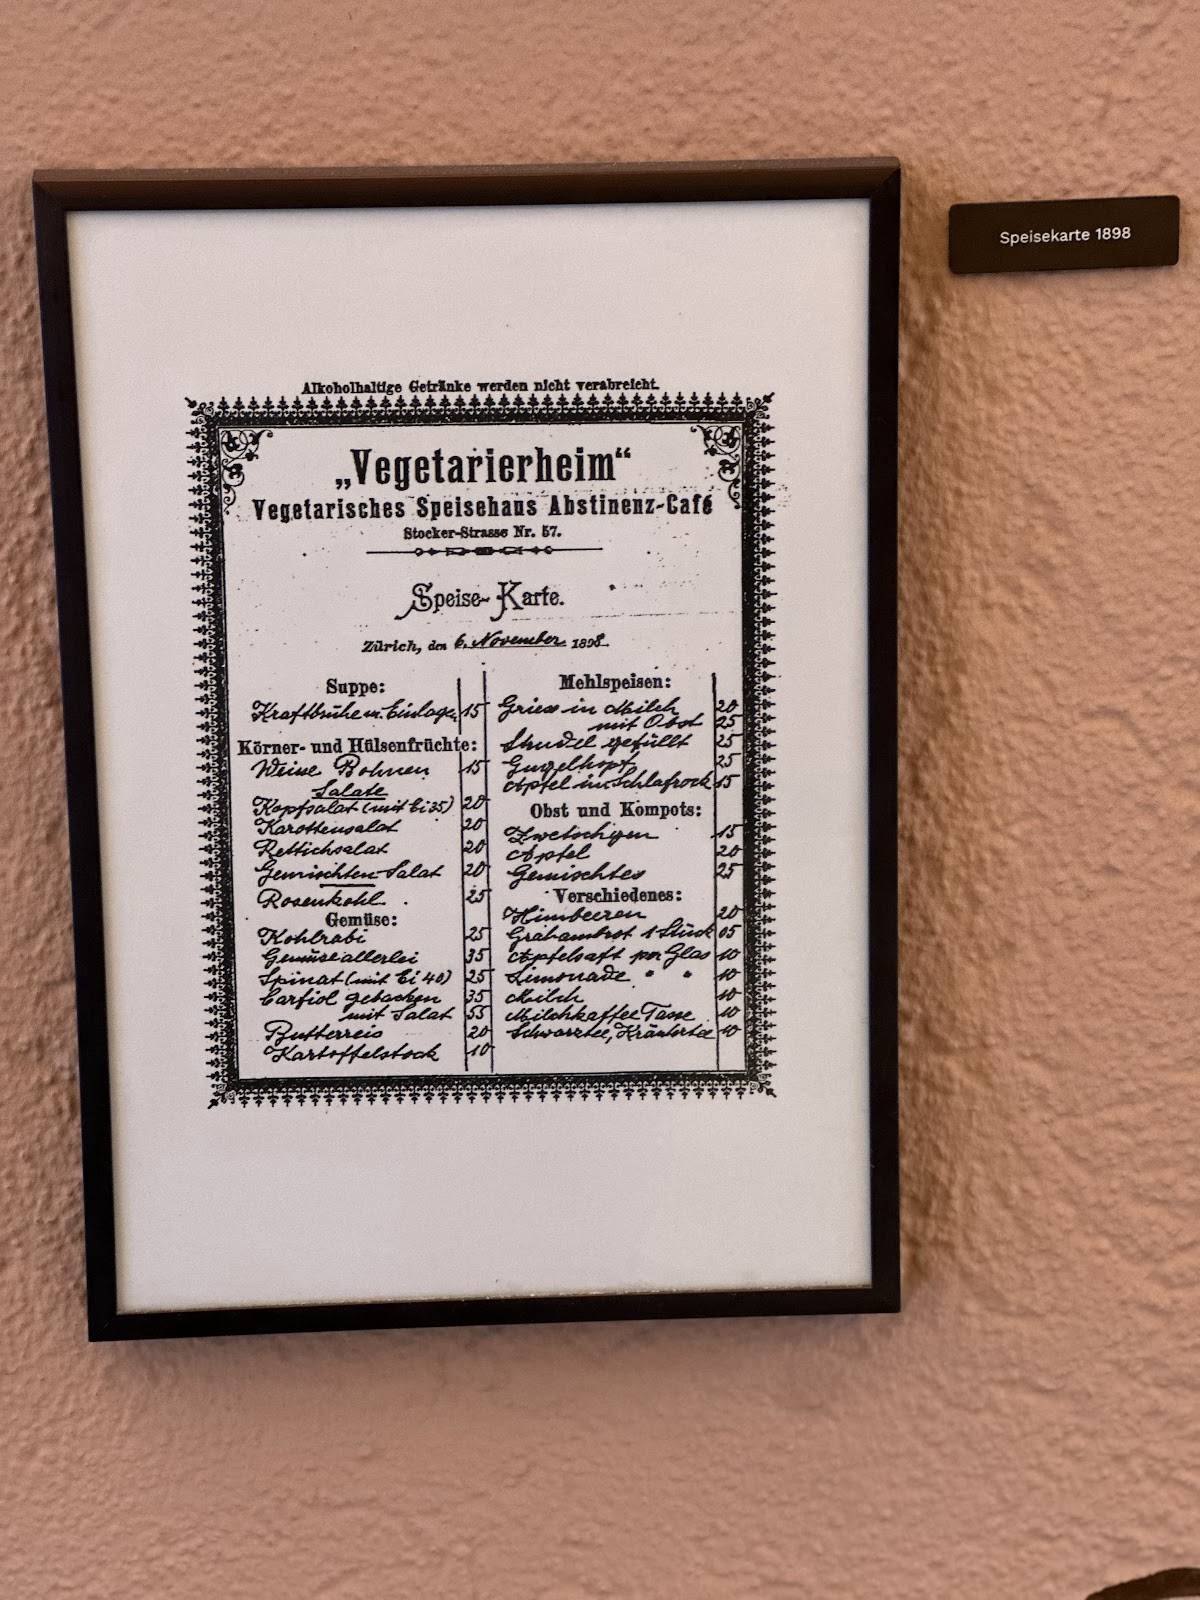 Speisekarte 1898
Alkoholhaltige Getränke werden nicht verabreicht.
„Vegetarierheim“
Vegetarisches Speisehaus Abstinenz-Café
Stocker-Strasse Nr. 57.
Speise-Karte.
Zürich, den 6. November 1898.
Suppe:
Kraftbrühe m. Einlage 15
Körner- und Hülsenfrüchte:
Weisse Bohnen 15
Salate
Kopfsalat (mit Ei 35) 20
Karottensalat 20
Rettichsalat 20
Gemischten Salat 20
Rosenkohl 25
Gemüse:
Kohlrabi 25
Gemüseallerlei 35
Spinat (mit Ei 40) 25
Carfiol gebacken 35
mit Salat 55
Butterreis 20
Kartoffelstock 10
Mehlspeisen:
Griess in Milch 20
mit Obst 25
Strudel gefüllt 25
Gugelhopf 25
Apfel im Schlafrock 15
Obst und Kompots:
Zwetschgen 15
Apfel 20
Gemischtes 25
Verschiedenes:
Himbeeren 20
Grahambrot 1 Stück 05
Apfelsaft per Glas 10
Limonade " " 10
Milch 10
Milchkaffee Tasse 10
Schwarztee, Kräutertee 10